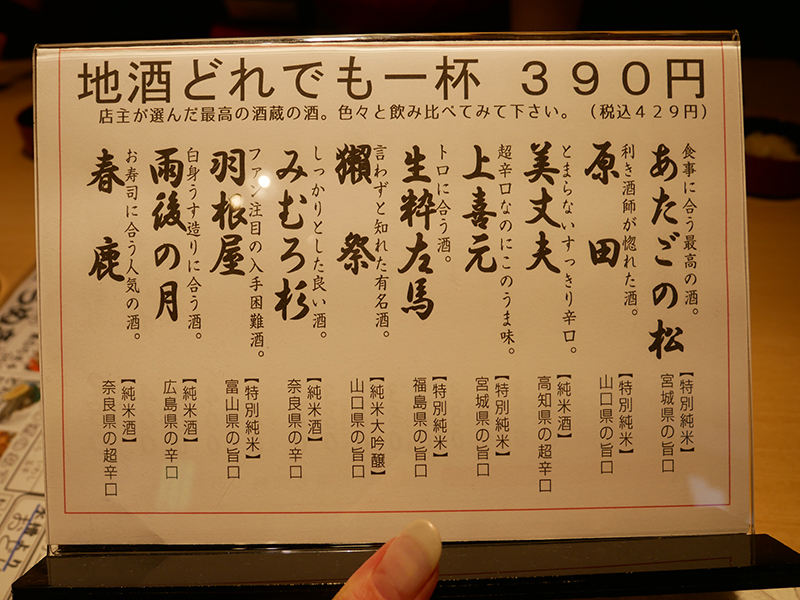 地酒どれでも一杯 390円
店主が選んだ最高の酒蔵の酒。色々と飲み比べてみて下さい。（税込429円）
食事に合う最高の酒。
あたごの松
【特別純米】
宮城県の旨口
利き酒師が惚れた酒。
原田
【特別純米】
山口県の旨口
とまらないすっきり辛口。
美丈夫
【純米酒】
高知県の超辛口
超辛口なのにこのうま味。
上喜元
【特別純米】
宮城県の旨口
トロに合う酒。
生粋左馬
【特別純米】
福島県の旨口
言わずと知れた有名酒。
獺祭
【純米大吟醸】
山口県の旨口
しっかりとした良い酒。
みむろ杉
【純米酒】
奈良県の辛口
ファン注目の入手困難酒。
羽根屋
【特別純米】
富山県の旨口
白身うす造りに合う酒。
雨後の月
【純米酒】
広島県の辛口
お寿司に合う人気の酒。
春鹿
【純米酒】
奈良県の超辛口